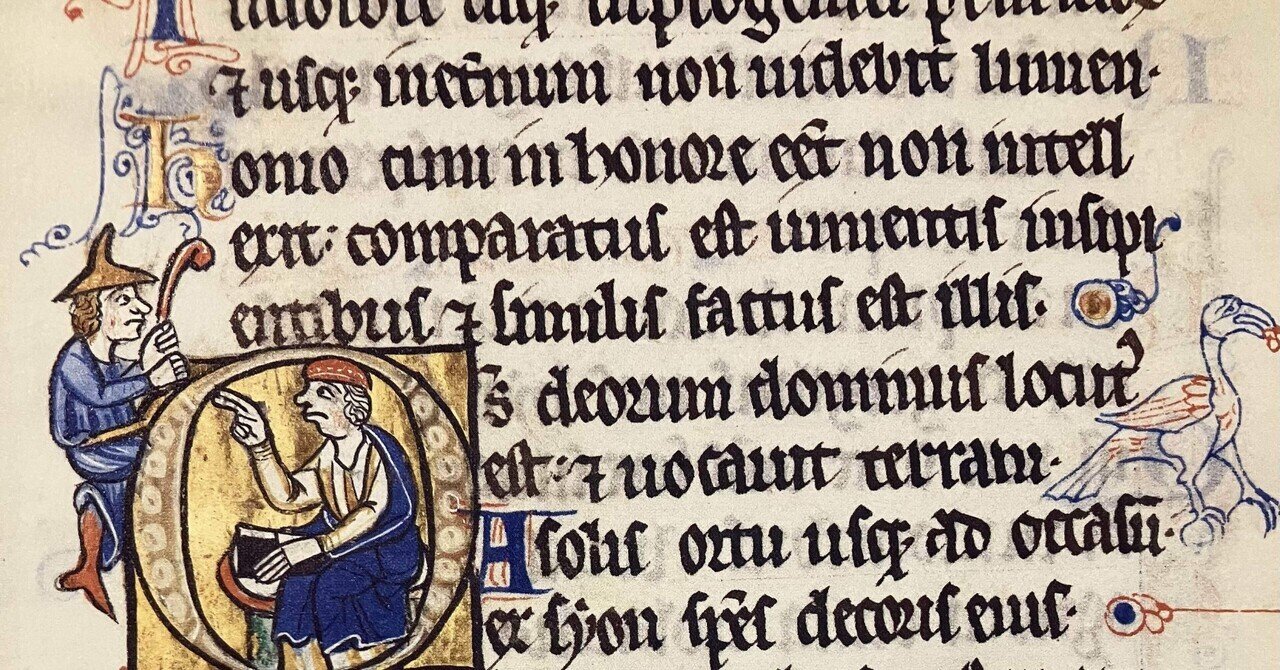 Introibit usq; inprogenies
⁊ usq; inet̃num non uidebit lumen·
Homo cum in honore eēt non intell
exit: comparatus est iumentis insipi
entibus ⁊ similis factus est illis·
Ds̄ deorum dominus locutꝰ
est: ⁊ uocauit terram·
A solis ortu usq; ad occasū·
ex syon spēs decoris eius·